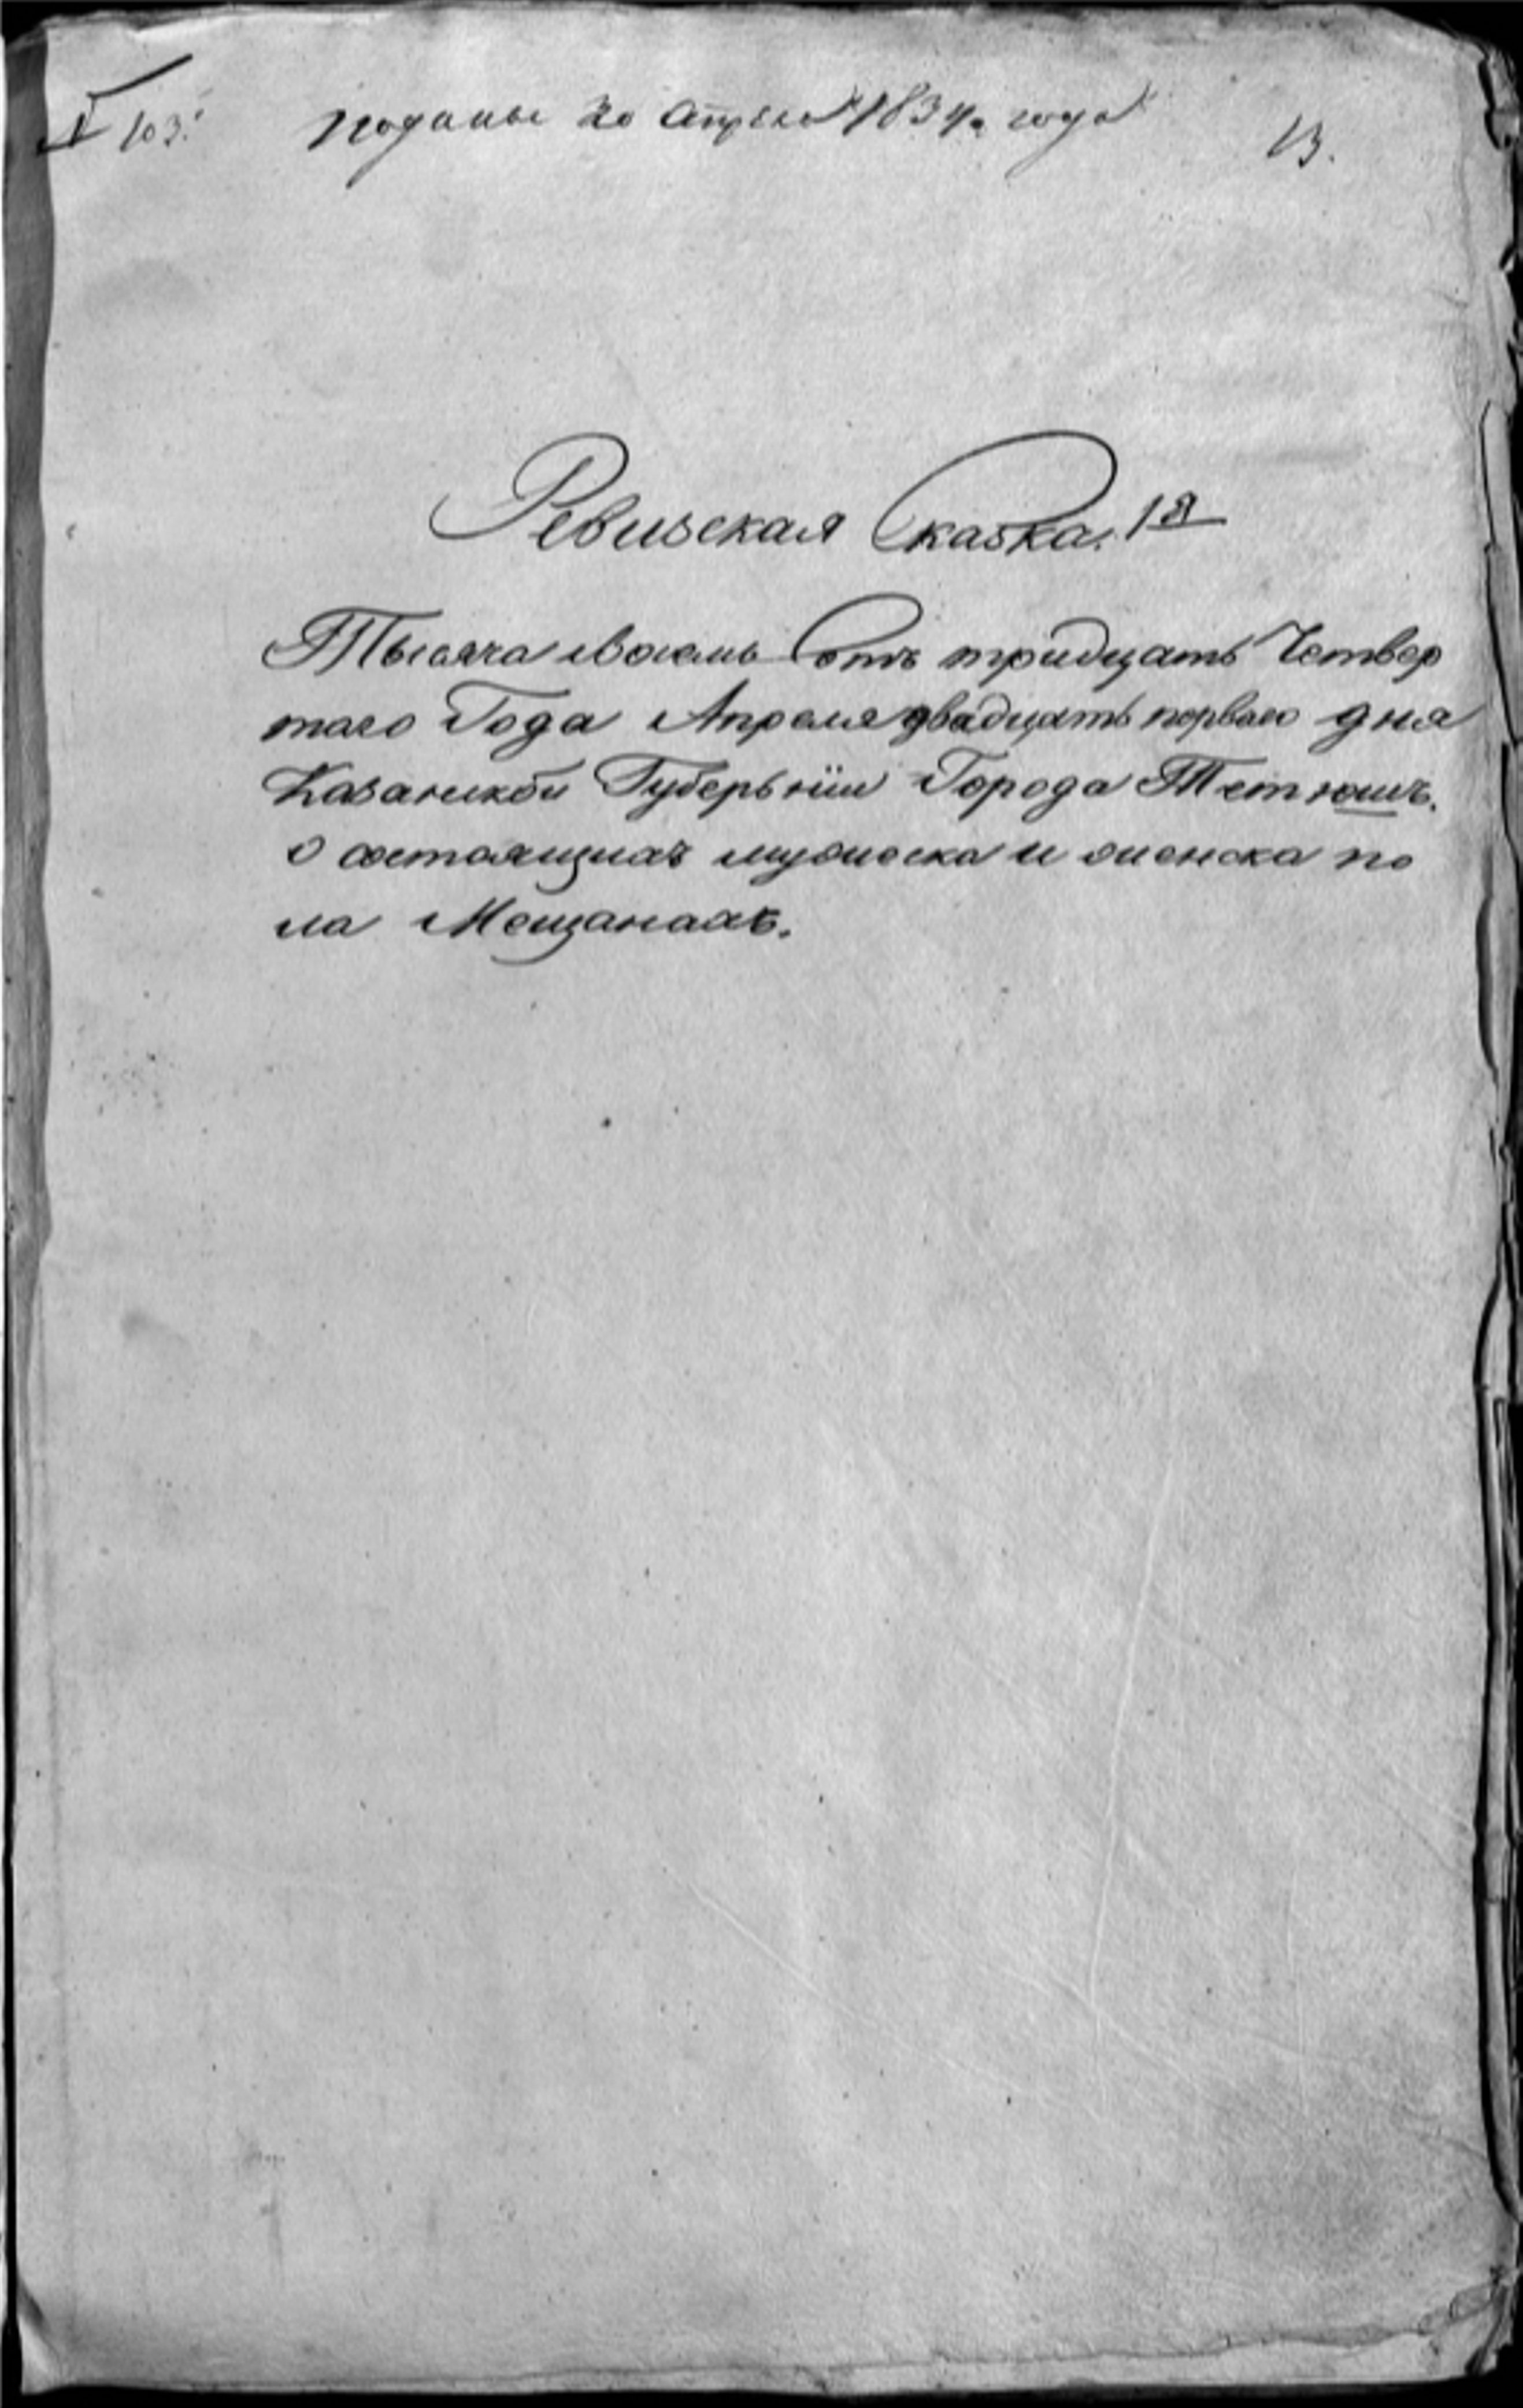 103.
поданы 20 апреля 1834го года
13.
Ревизская Сказка. 1я
Тысяча восемь Сотъ тридцать Четвер
таго Года Апреля двадцать перваго дня
Казанской Губернiи Города Тетюшъ.
О состоящихъ мужеска и женска по
ла Мещанахъ.